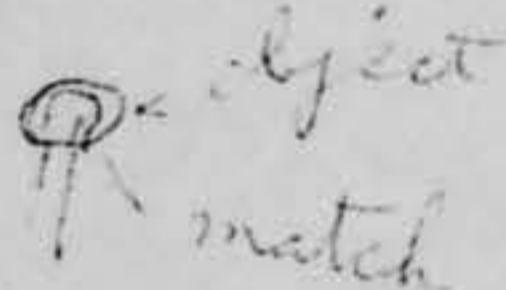 object
match